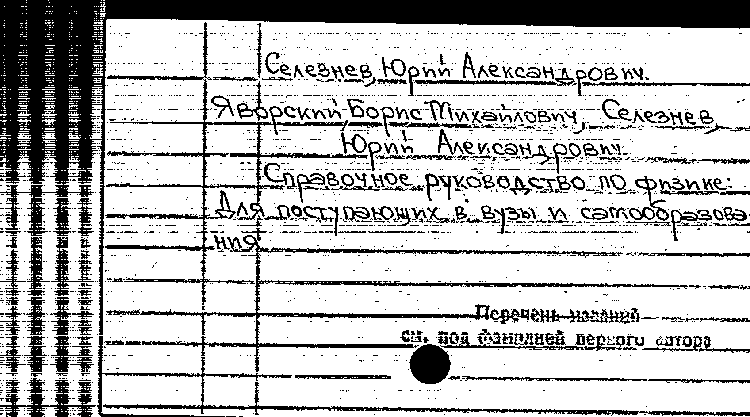 Селезнев, Юрий Александрович.
Яворский, Борис Михайлович, Селезнев,
Юрий Александрович.
Справочное руководство по физике:
Для поступающих в вузы и самообразова
ния
Перечень изданий
см. под фамилией первого автора